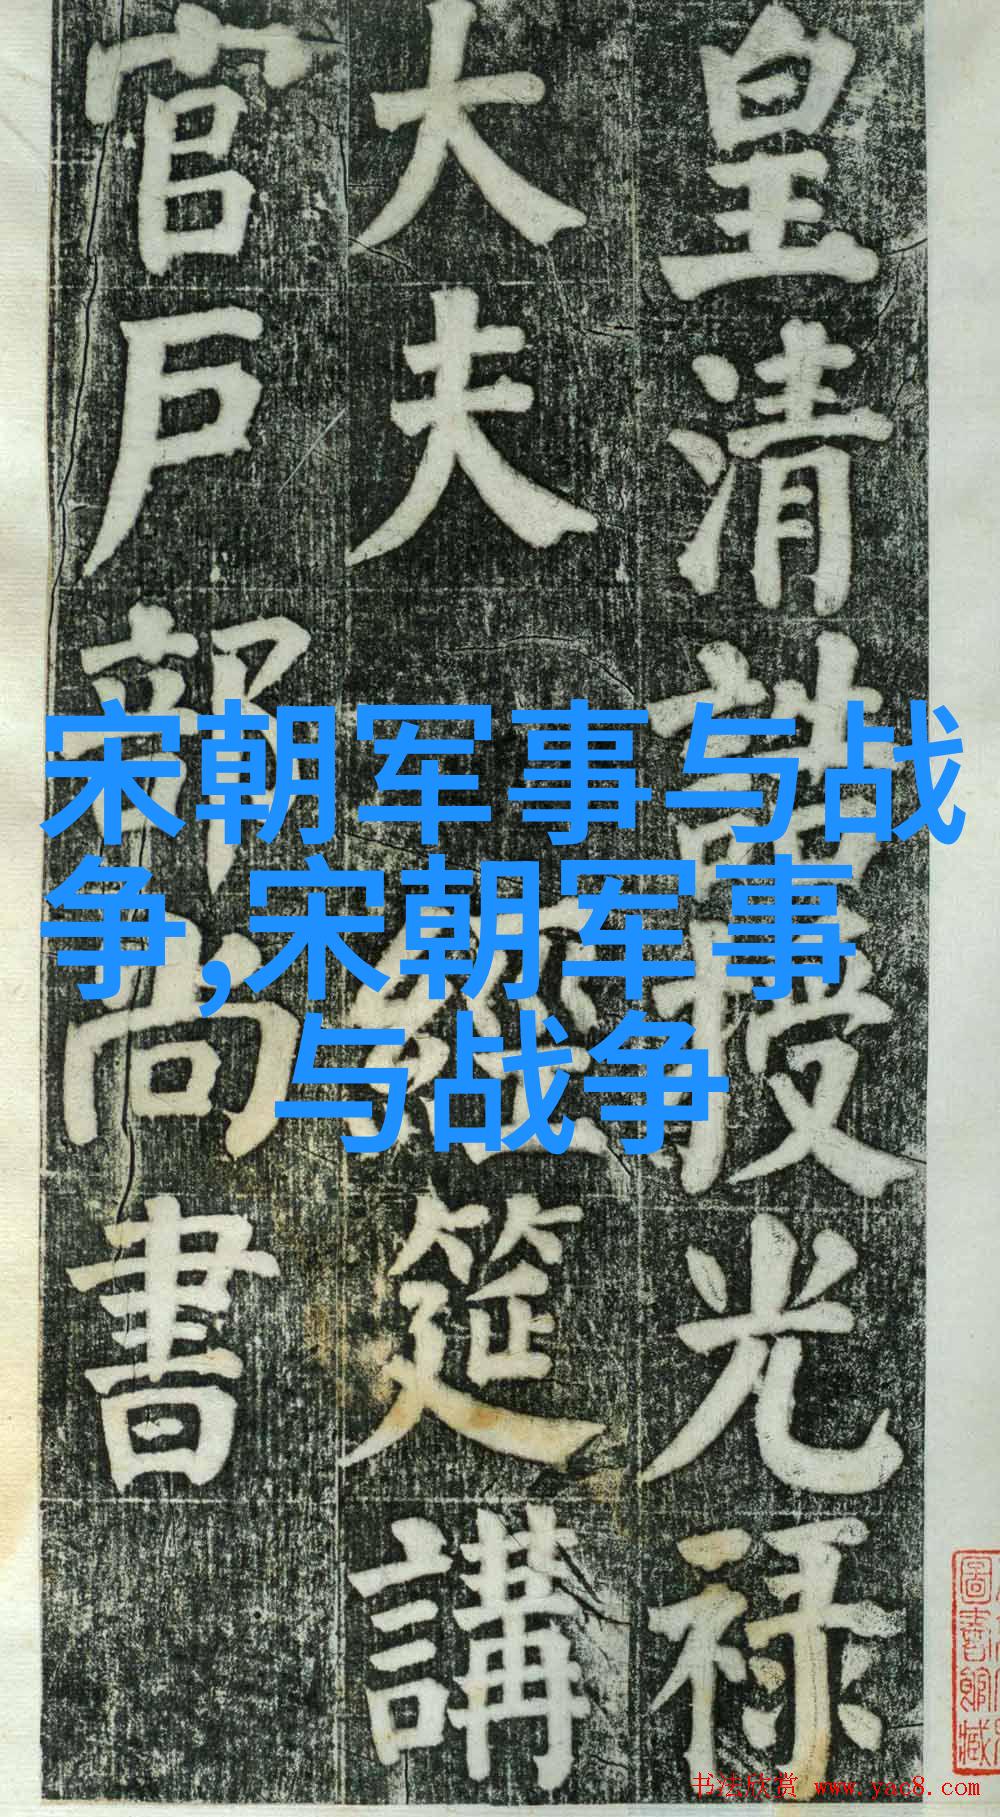 皇清誥授光禄
大夫 經筵講
官戶部尚書
宋朝军事与战
争,宋朝军事
与战争
圖書館藏
书法欣赏 www.yac8.com